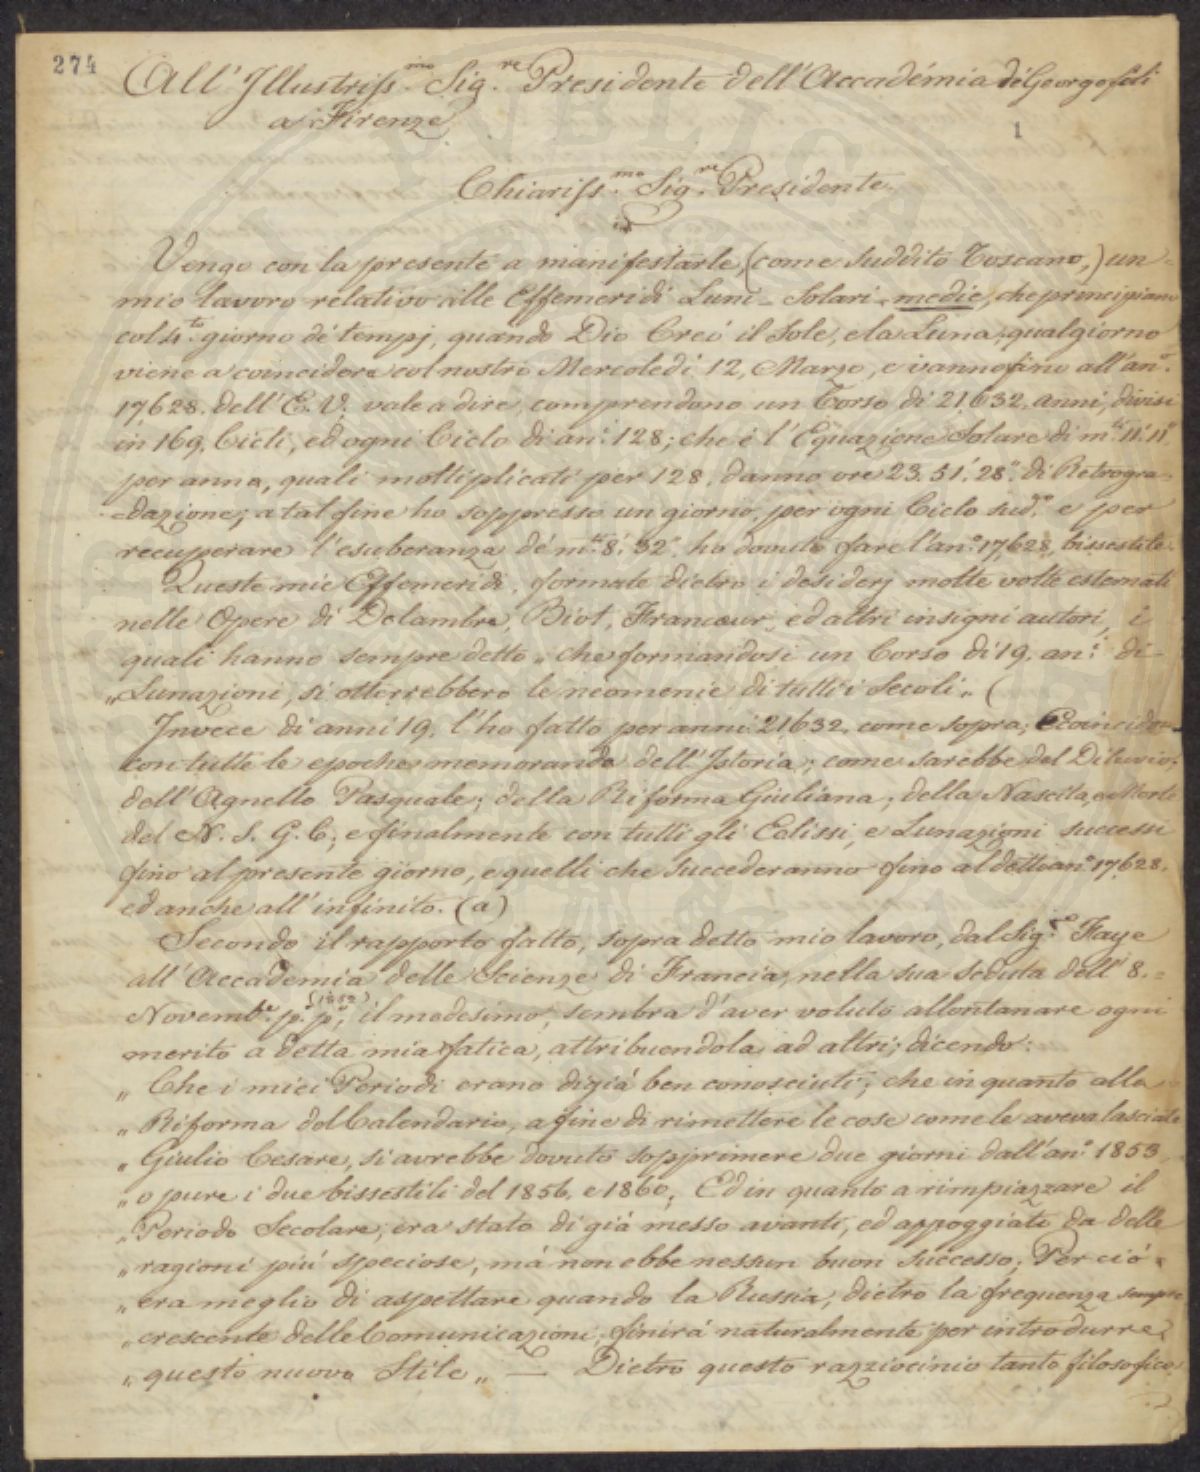 274
All'Illustriss.mo Sig.re Presidente dell'Accadémia dé Georgofili
a Firenze
1
Chiariss.mo Sig.re Presidente
Vengo con la presente a manifestarle, (come Suddito Toscano,) un
mio lavoro relativo alle Effemeridi Luni-Solari-medie, che principiano
col 4.to giorno dé tempj, quando Dio Creó il Sole, e la Luna, qual giorno
viene a coincidere col nostro Mercoledí 12, Marzo, e vanno fino all'an.o
17,628. dell'E. V. vale a dire, comprendono un Corso di 21,632. anni, divisi
in 169, Cicli, ed ogni Ciclo di an.i 128; che é l'Equazione Solare di m.ti 11.' 11."
per anno, quali moltiplicati per 128. danno ore 23. 51.' 28." di Retrogra-
-dazione; a tal fine ho soppresso un giorno, per ogni Ciclo sud.o e per
recuperare l'esuberanza dé m.ti 8.' 32." ho dovuto fare l'an.o 17,628, bissestile.
Queste mie Effemeridi, formate dietro i desiderj molte volte esternati
nelle Opere di Delambre, Biot, Francœur, ed altri insigni autori, i
quali hanno sempre detto „ che formandosi un Corso di 19. an.i di-
„ Lunazioni, si otterrebbero le neomenie di tutti i Secoli „ (
Invece di anni 19. l'ho fatto per anni 21632. come sopra; E coincidono
con tutte le epoche memorande dell'Istoria; come sarebbe del Diluvio;
dell'Agnello Pasquale; della Riforma Giuliana; della Nascita, e Morte
del N. S. G. C; e finalmente con tutti gli Eclissi, e Lunazioni successi
fino al presente giorno, e quelli che succederanno fino al detto an.o 17,628.
ed anche all'infinito. (a)
Secondo il rapporto fatto, sopra detto mio lavoro, dal Sig.re Faye
all'Accademia delle Scienze di Francia, nella sua seduta dell'8.=
Novemb.e p.o p.o, (1852) il medesimo, sembra d'aver voluto allontanare ogni
merito a detta mia fatica, attribuendola ad altri; dicendo:
„ Che i miei Periodi erano digiá ben conosciuti; che in quanto alla
„ Riforma del Calendario, a fine di rimettere le cose come le aveva lasciate
„ Giulio Cesare, si avrebbe dovuto sopprimere due giorni dall'an.o 1853
„ o pure i due bissestili del 1856. e 1860; Ed in quanto a rimpiazzare il
„ Periodo Secolare, era stato di giá messo avanti, ed appoggiato da delle
„ ragioni piú speciose, má non ebbe nessun buon successo; Per ció
„ era meglio di aspettare quando la Russia, dietro la frequenza sempre
„ crescente delle Comunicazioni, finirá naturalmente per introdurre
„ questo nuovo Stile „ — Dietro questo razziocinio tanto filosofico